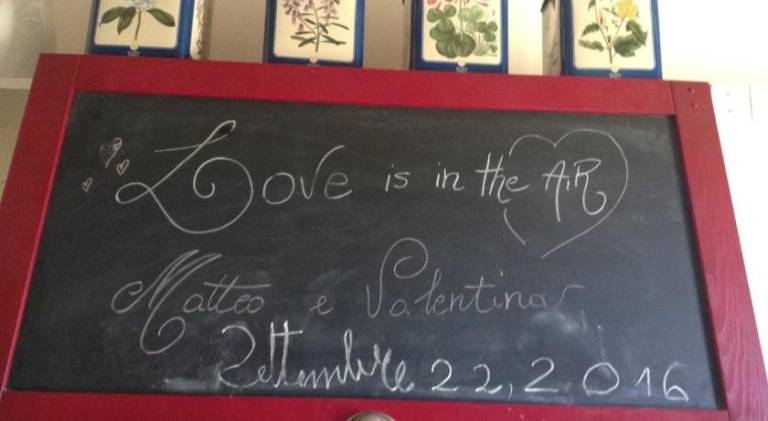 Love is in the AiR
Matteo e Valentina
Settembre 22, 2016